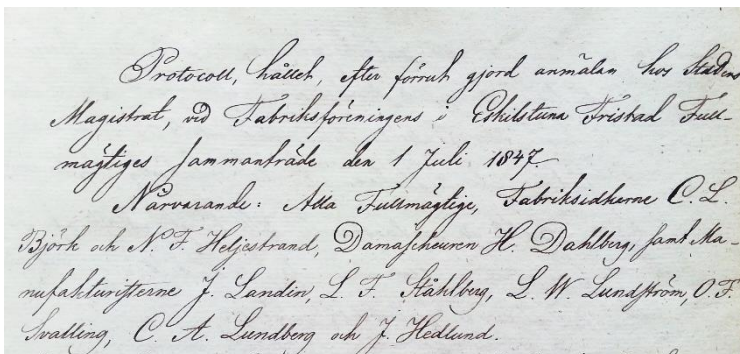 Protocoll, hållet, efter förrut gjord anmälan hos Stadens
Magistrat, vid Fabriksföreningens i Eskilstuna Fristad Full-
mägtiges sammanträde den 1 Juli 1847.
Närvarande: Alla Fullmägtige, Fabriksidkerne C. L.
Björk och N. F. Heljestrand, Damascheuren H. Dahlberg, samt Ma-
nufakturisterne J. Landin, L. F. Ståhlberg, L. W. Lundström, O. F.
Svalling, C. A. Lundberg och J. Hedlund.